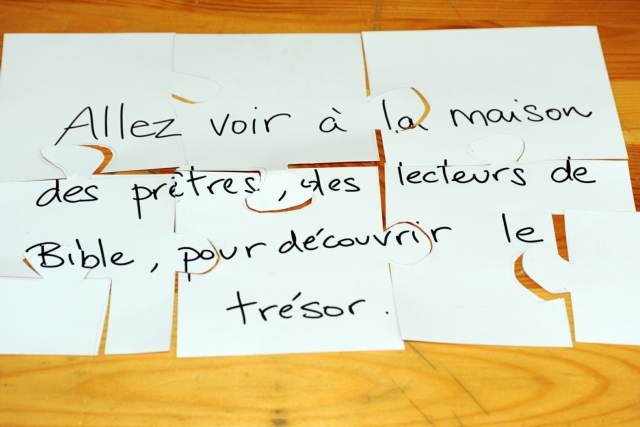 Allez voir à la maison
des prêtres, des lecteurs de
Bible, pour découvrir le
trésor.